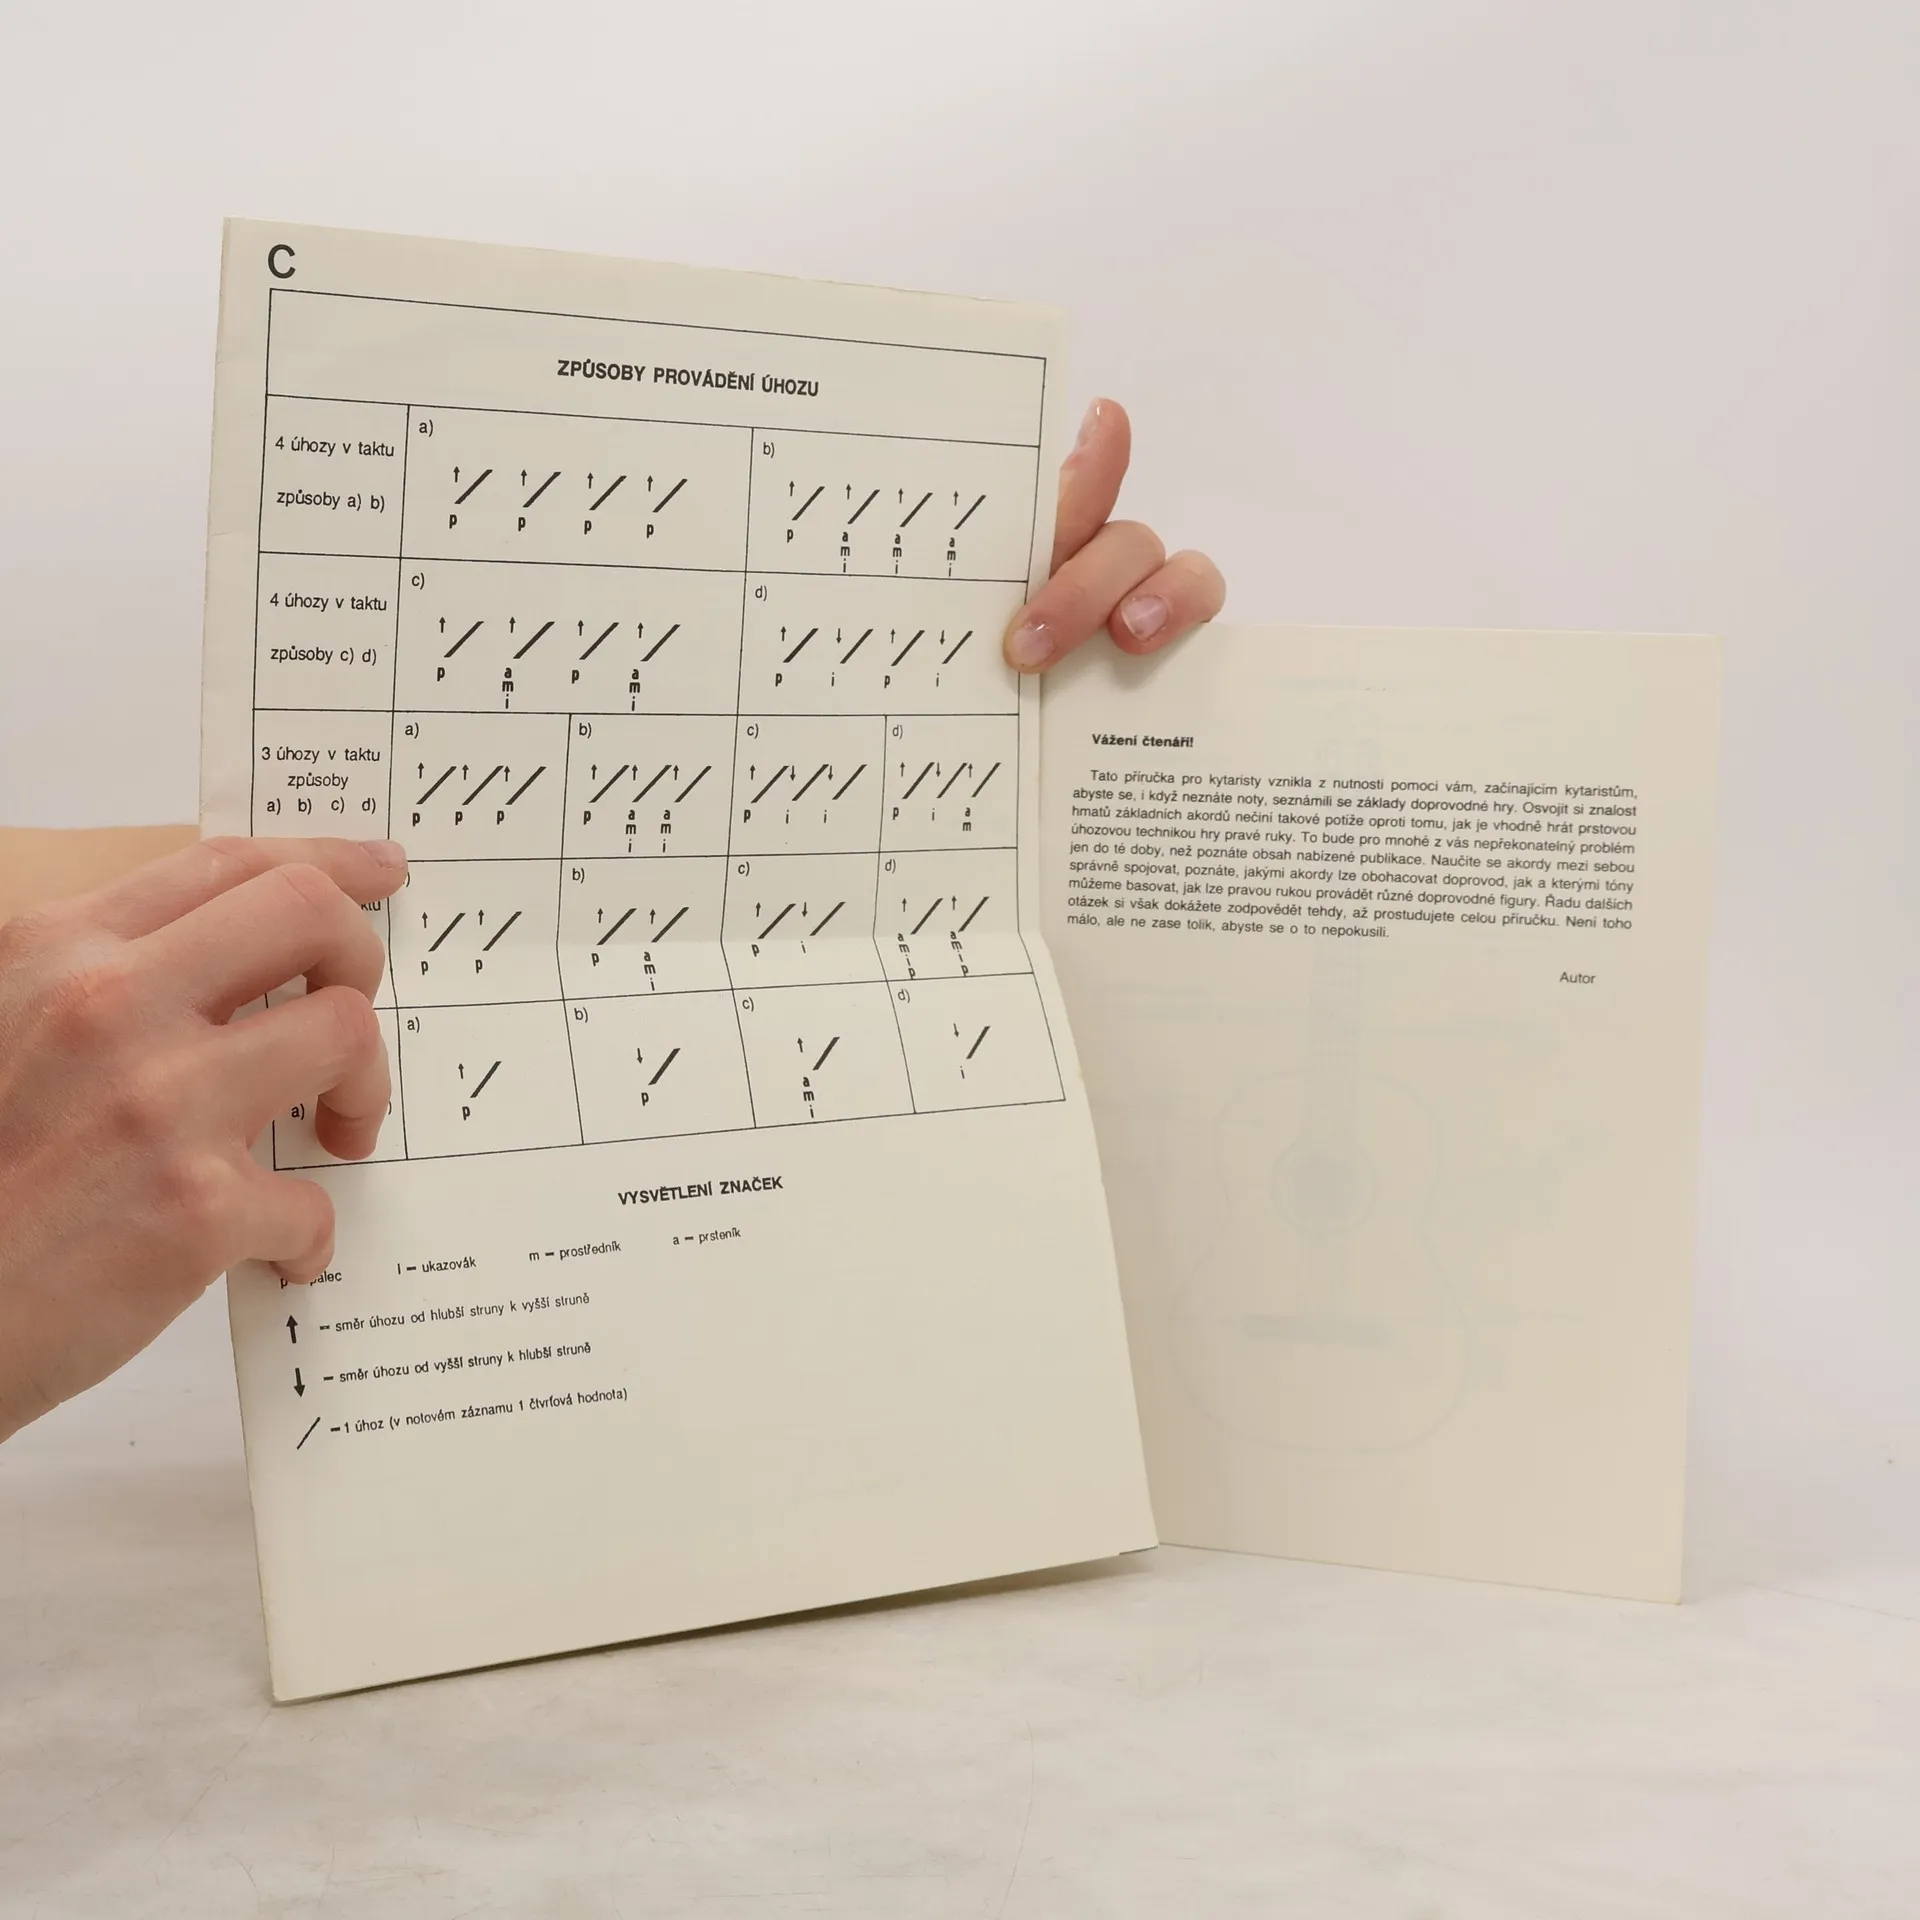 C
ZPŮSOBY PROVÁDĚNÍ ÚHOZU
4 úhozy v taktu
způsoby a) b)
a)
p p p p
b)
p a m i a m i a m i
4 úhozy v taktu
způsoby c) d)
c)
p a m i p a m i
d)
p i p i
3 úhozy v taktu
způsoby
a) b) c) d)
a)
p p p
b)
p a m i a m i
c)
p i i
d)
p i a m
p p
b)
p a m i
c)
p i
d)
a m i p a m i p
a)
a)
p
b)
p
c)
a m i
d)
i
VYSVĚTLENÍ ZNAČEK
i – ukazovák m – prostředník a – prsteník
↑ – směr úhozu od hlubší struny k vyšší struně
↓ – směr úhozu od vyšší struny k hlubší struně
/ – 1 úhoz (v notovém záznamu 1 čtvrťová hodnota)
Vážení čtenáři!
Tato příručka pro kytaristy vznikla z nutnosti pomoci vám, začínajícím kytaristům,
abyste se, i když neznáte noty, seznámili se základy doprovodné hry. Osvojit si znalost
hmatů základních akordů nečiní takové potíže oproti tomu, jak je vhodně hrát prstovou
úhozovou technikou hry pravé ruky. To bude pro mnohé z vás nepřekonatelný problém
jen do té doby, než poznáte obsah nabízené publikace. Naučíte se akordy mezi sebou
správně spojovat, poznáte, jakými akordy lze obohacovat doprovod, jak a kterými tóny
můžeme basovat, jak lze pravou rukou provádět různé doprovodné figury. Řadu dalších
otázek si však dokážete zodpovědět tehdy, až prostudujete celou příručku. Není toho
málo, ale ne zase tolik, abyste se o to nepokusili.
Autor